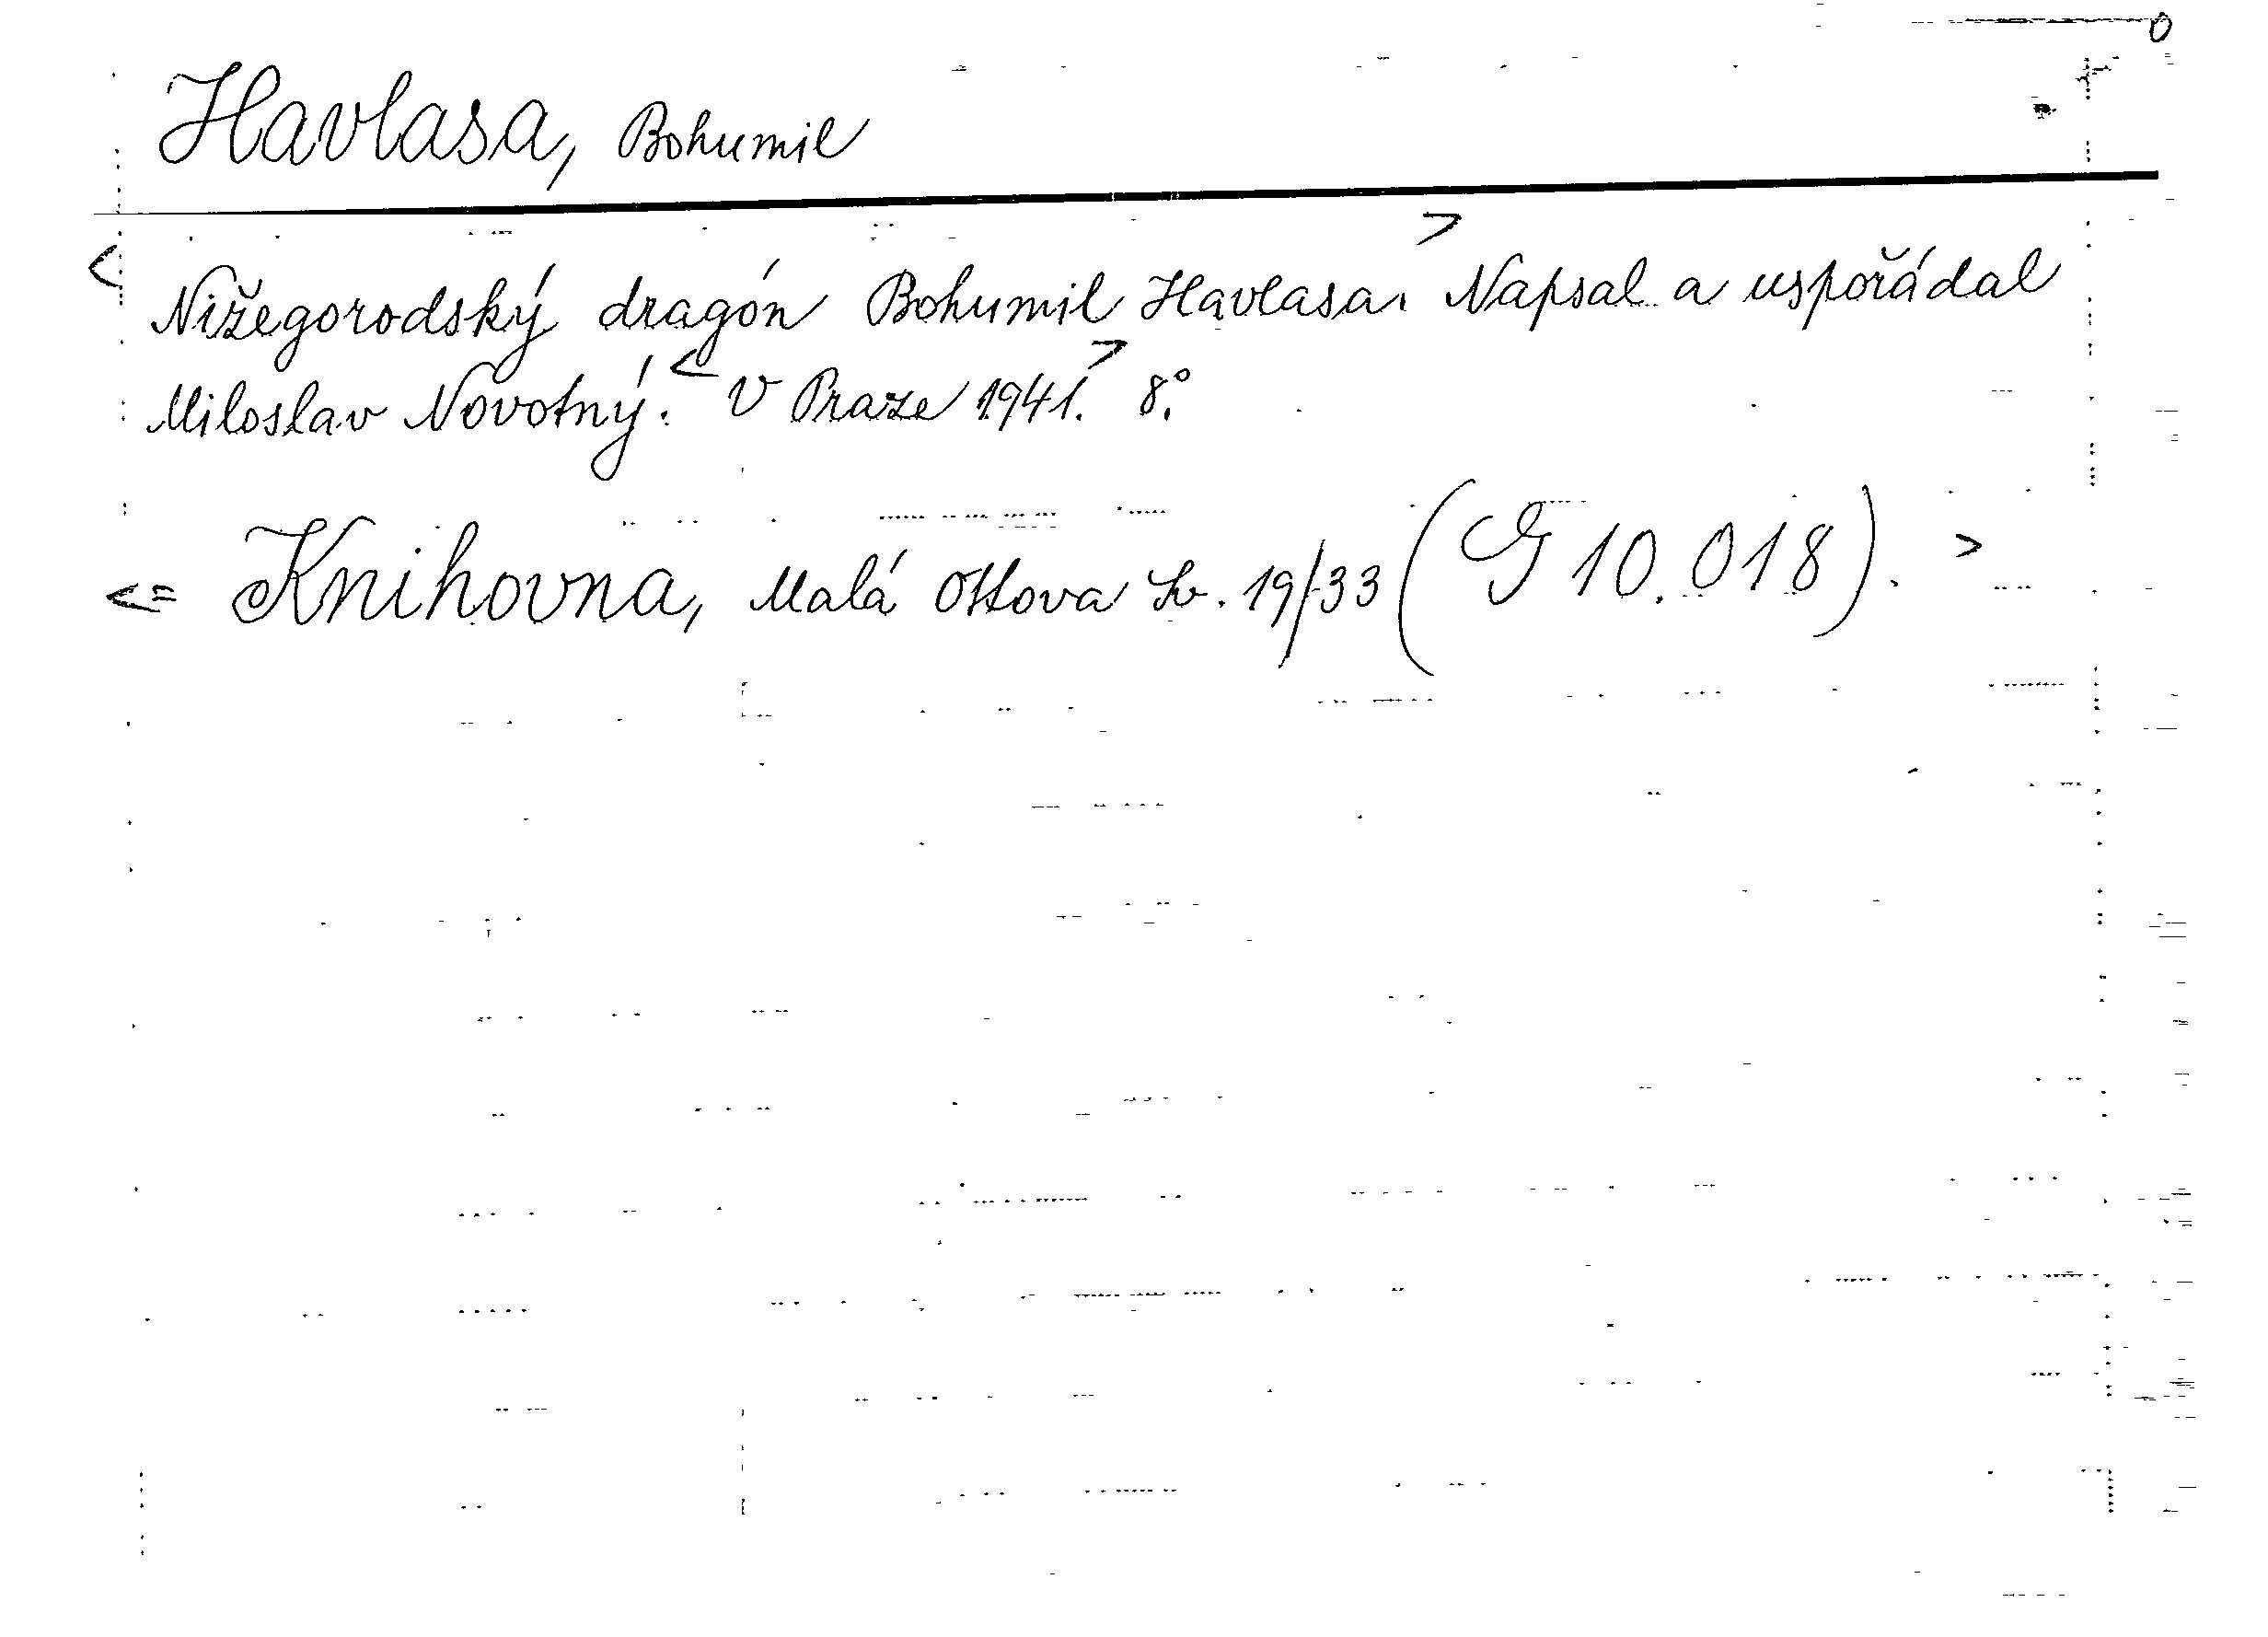 Havlasa, Bohumil
<Nižegorodský dragón Bohumil Havlasa.> Napsal a uspořádal
Miloslav Novotný. <V Praze 1941.> 8°.
<= Knihovna, Malá Ottova Sv. 19/33 (G 10.018). >